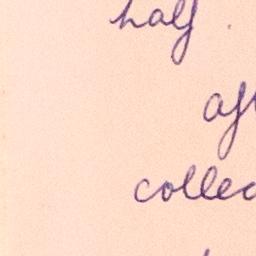 half.
af
collec